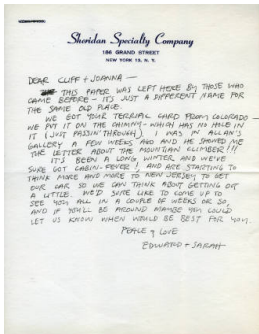 Sheridan Specialty Company
186 GRAND STREET
NEW YORK 13, N. Y.
DEAR CLIFF + JOANNA -
THIS PAPER WAS LEFT HERE BY THOSE WHO
CAME BEFORE - IT'S JUST A DIFFERENT NAME FOR
THE SAME OLD PLACE.
WE GOT YOUR TERRIAL CARD FROM COLORADO -
WE PUT IT ON THE CHIMNY - WHICH HAS NO HOLE IN
IT (JUST PASSIN' THROUGH). I WAS IN ALLAN'S
GALLERY A FEW WEEKS AGO AND HE SHOWED ME
THE LETTER ABOUT THE MOUNTAIN CLIMBER!!!
IT'S BEEN A LONG, WINTER, AND WE'VE
SURE GOT CABIN FEVER AND ARE STARTING TO
THINK MORE AND MORE TO NEW JERSEY TO GET
OUR CAR SO WE CAN THINK ABOUT GETTING OUT
A LITTLE. WE'D SURE LIKE TO COME UP TO
SEE YOU ALL IN A COUPLE OF WEEKS OR SO,
AND IF YOU'LL BE AROUND MAYBE YOU COULD
LET US KNOW WHEN WOULD BE BEST FOR YOU.
PEACE & LOVE
EDWARD + SARAH